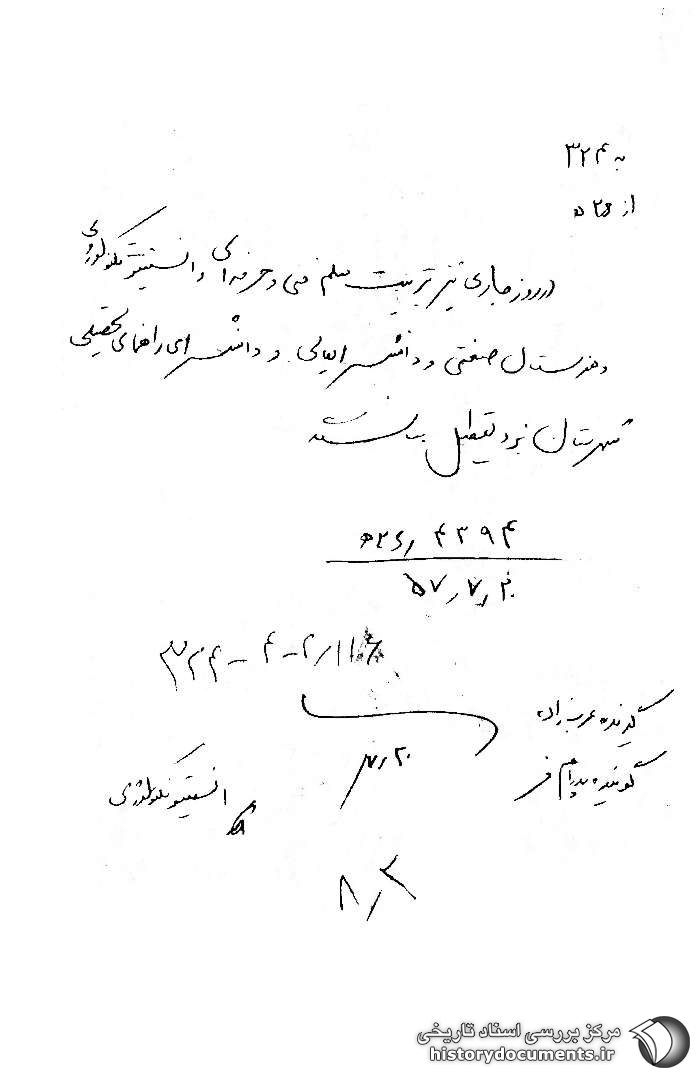 به ۳۲۴
از ۵۲۶
در روز جاری نیز تربیت معلم فنی و حرفه‌ای و انستیتو تکنولوژی
و هنرستان صنعتی و دانشسرایعالی و دانشسرای راهنمای تحصیلی
شهرستان یزد تعطیل میباشند
۵۲۶٫ ۴۳۹۴
۵۷٫۷٫۲۰
۳۲۴-۴-۲٫۱۱۸۶
گیرنده عرب زاده
گوینده پدرام فر
۷٫۲۰
انستیتو تکنولوژی
۸٫۲
مرکز بررسی اسناد تاریخی
historydocuments.ir